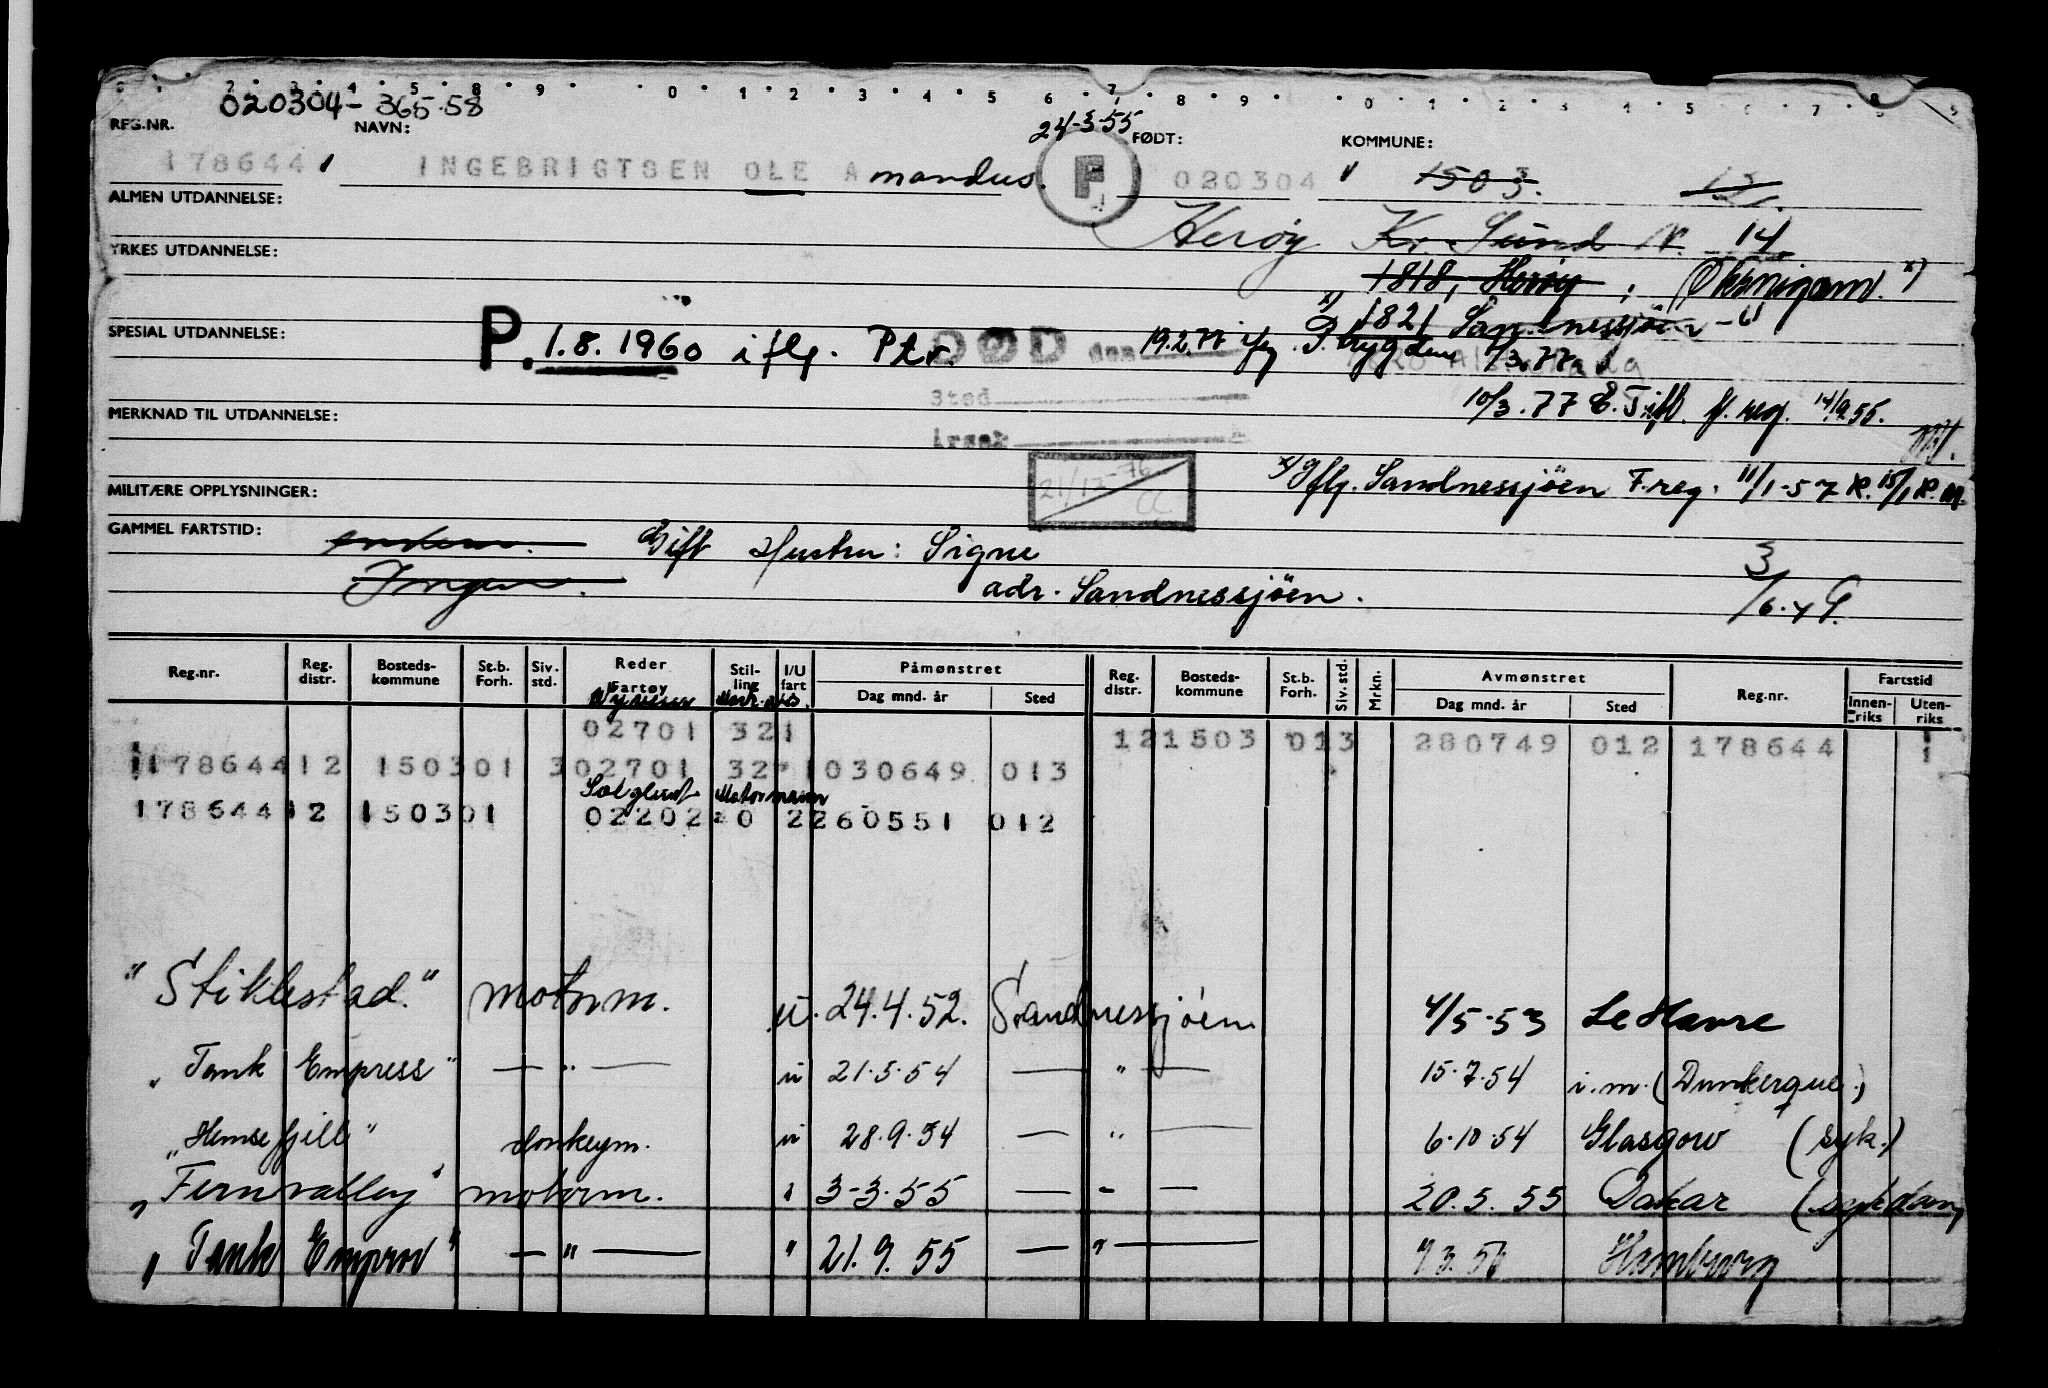 020304-365.58
REG.NR.
NAVN:
24-3-55
FØDT:
KOMMUNE:
178644
INGEBRIGTSEN OLE Amandus.
F
020304
1503.
ALMEN UTDANNELSE:
Herøy Kr. Sund N. 14
YRKES UTDANNELSE:
1818, Herøy ;
1821 Sandnessjöen
SPESIAL UTDANNELSE:
P. 1.8.1960 iflg. Ptr.
DØD den 19.2.77 P.trygden 7/3.77
Sted
Årsak
10/3.77 fl. reg. 14/9.55.
MERKNAD TIL UTDANNELSE:
MILITÆRE OPPLYSNINGER:
21/12-76
x) Iflg. Sandnessjöen F.reg. 11/1-57 K. 15/1
GAMMEL FARTSTID:
Ingen.
Gift Hustru: Signe
adr. Sandnessjöen.
3/6.49.
Reg.nr. Reg. distr. Bosteds- kommune St.b. Forh. Siv. std. Reder Fartøy Stil- ling I/U fart Påmønstret Dag mnd. år Sted Reg. distr. Bosteds- kommune St.b. Forh. Siv. std. Mrkn. Avmønstret Dag mnd. år Sted Reg.nr. Fartstid Innen- riks Uten- riks
02701 321 121503 013 280749 012 178644 1
178644 12 150301 302701 32 1 030649 013
Solglimt Motormann
178644 12 150301 02202 0 2 260551 012
"Stiklestad." motorm. u. 24.4.52. Sandnessjöen 4/5-53 Le Havre
"Tank Empress" — " — u 21.5.54 — " — 15.7.54 i.m. (Dunkerque.)
"Hemsefjell" donkeym. u 28.9.54 — " — 6.10.54 Glasgow (syk.)
"Fernvalley" motorm. " 3-3.55 — " — 20.5.55 Dakar (sykdom)
"Tank Emperor" — " — " 21.9.55 — " — Hamburg